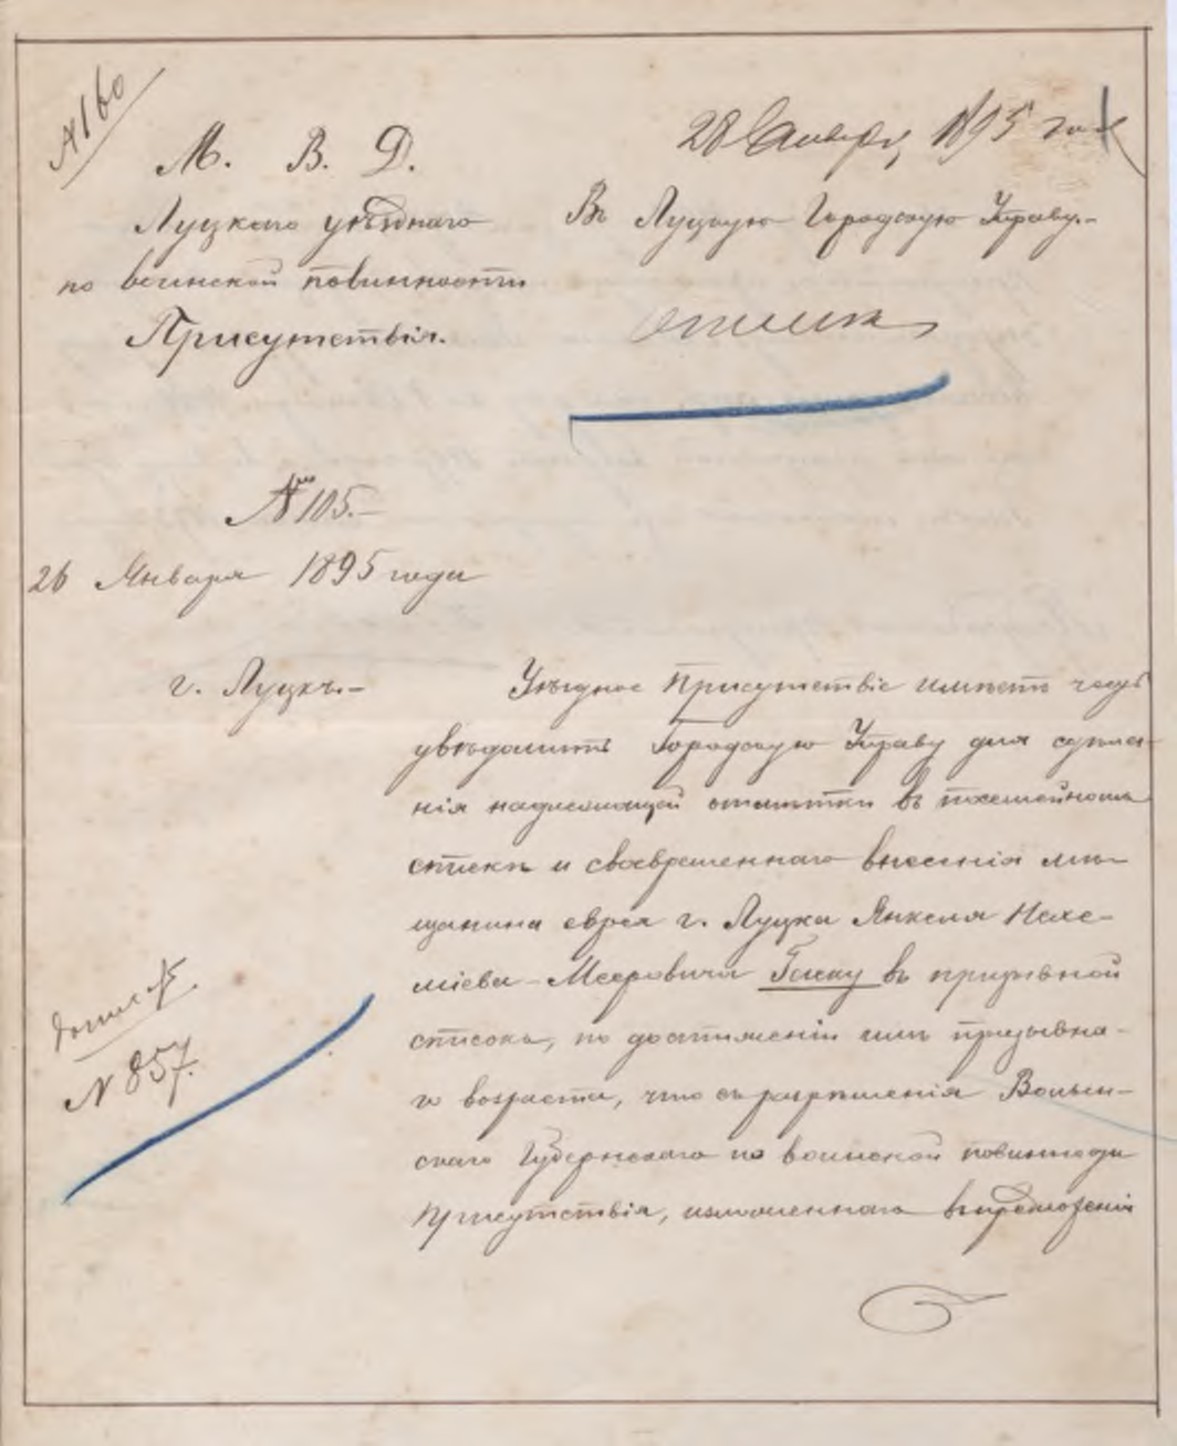 № 160
28 Января 1895 года
М. В. Д.
Луцкаго уѣзднаго
по воинской повинности
Присутствія.
Въ Луцкую Городскую Управу.-
№ 105.-
26 Января 1895 года
г. Луцкъ.-
Уѣздное Присутствіе имѣетъ честь
увѣдомить Городскую Управу для сдѣла-
нія надлежащей отмѣтки въ посемейномъ
спискѣ и своевременнаго внесенія мѣ-
щанина еврея г. Луцка Янкеля Нехе-
міева-Мееровича в въ призывной
списокъ, по достиженіи имъ призывна-
го возраста, что съ разрѣшенія Волын-
скаго Губернскаго по воинской повинности
Присутствія, изложеннаго въ предложеніи
№ 857.